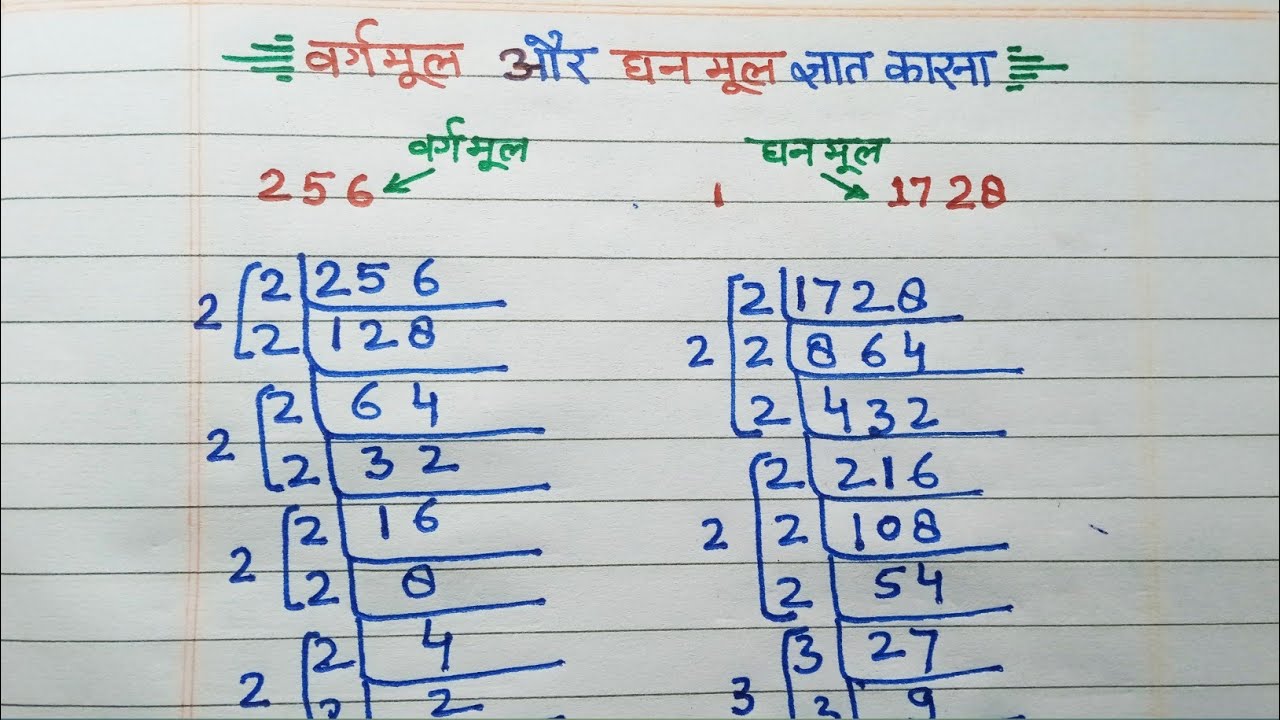 वर्गमूल और घनमूल ज्ञात कारना
वर्गमूल घनमूल
256 1 1728
2 2 256
2 128
2 2 64
2 32
2 2 16
2 8
2 2 4
2 2
2 1728
2 2 864
2 432
2 216
2 2 108
2 54
3 27
3 3 9